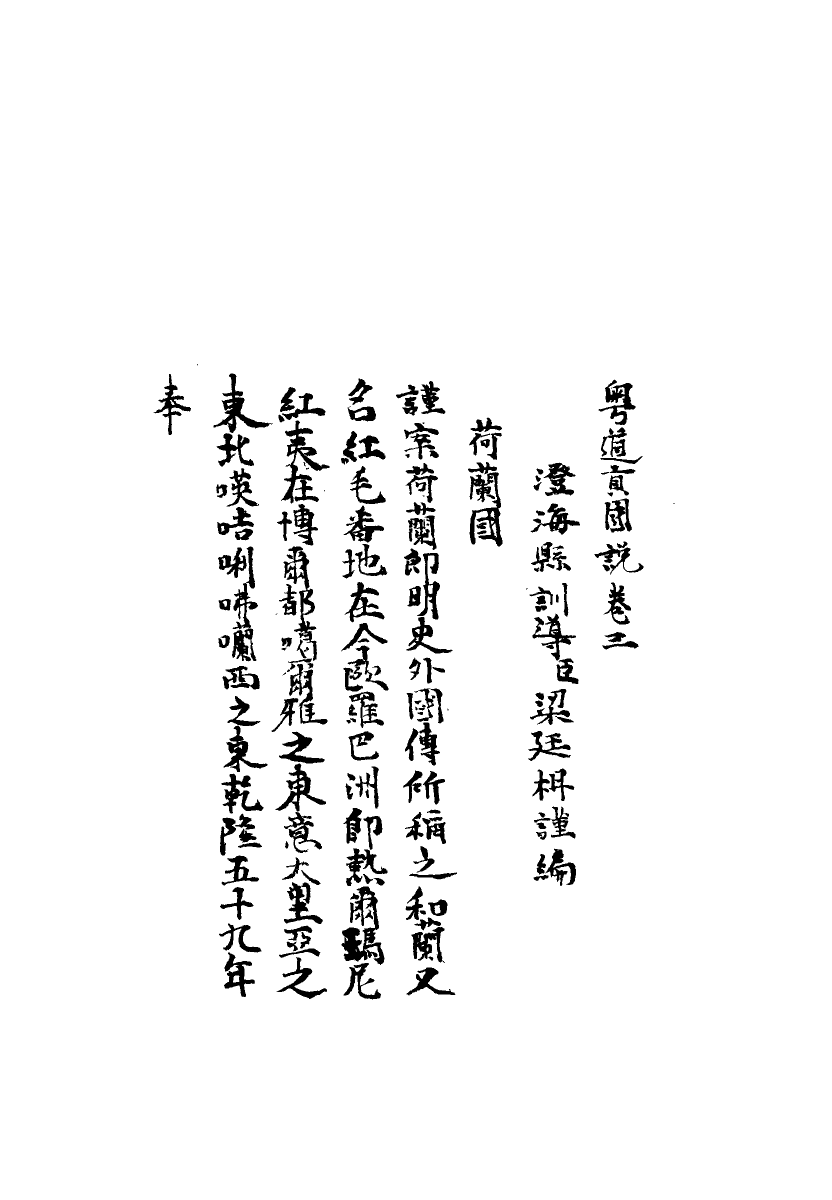 粤道貢國說卷三
澄海縣訓導臣梁廷枏謹編
荷蘭國
謹案荷蘭即明史外國傳所稱之和蘭又
名紅毛番地在今歐羅巴洲即熱爾瑪尼
紅夷在博爾都噶爾雅之東意大里亞之
東北𠸄咭唎咈囒西之東乾隆五十九年
奉